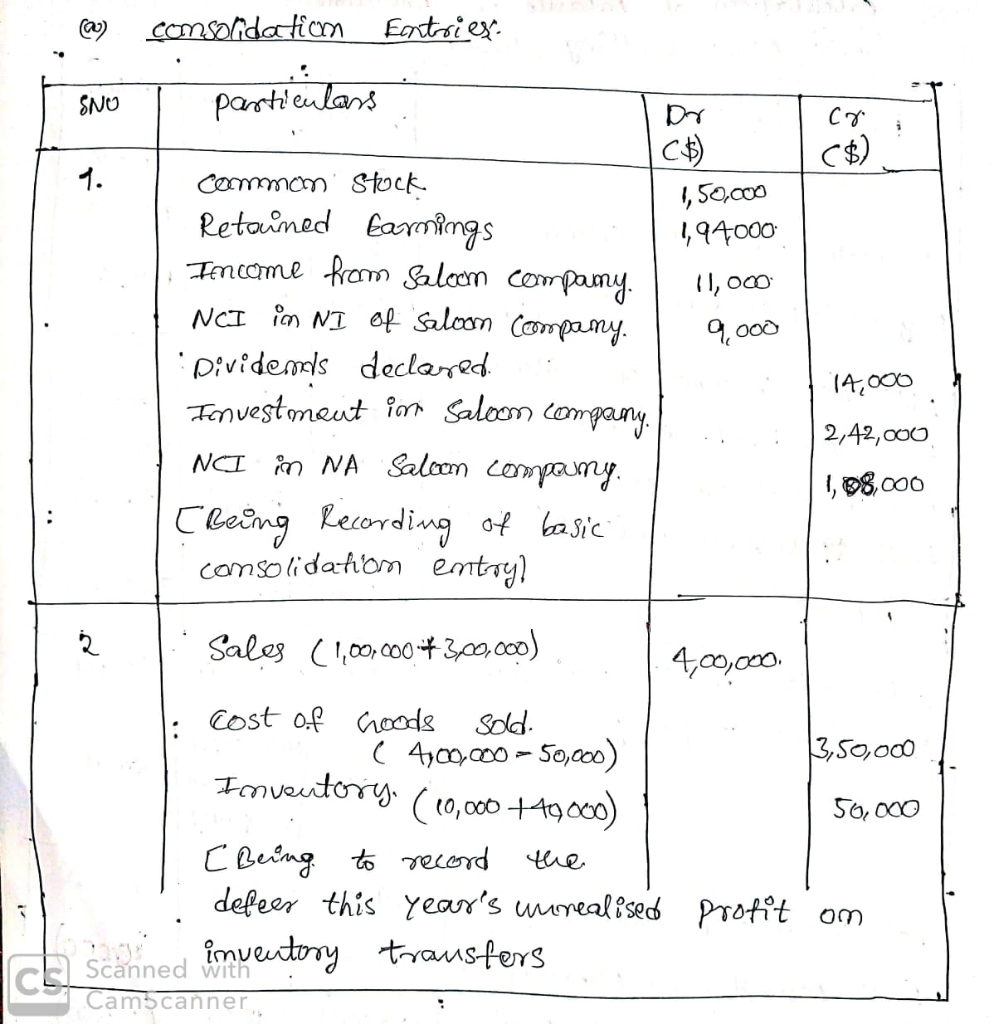 (a) consolidation Entries.
SNO Particulars Dr ($) Cr ($)
1. Common Stock 1,50,000
Retained Earnings 1,94000
Income from Saloon Company. 11,000
NCI in NI of Saloon Company. 9,000
Dividends declared. 14,000
Investment in Saloon company. 2,42,000
NCI in NA Saloon company. 1,08,000
[Being Recording of basic
consolidation entry]
2 Sales (1,00,000+3,00,000) 4,00,000.
Cost of Goods Sold.
(4,00,000-50,000) 3,50,000
Inventory. (10,000+40,000) 50,000
[Being to record the
defeer this year's unrealised Profit on
inventory transfers
CS Scanned with
CamScanner